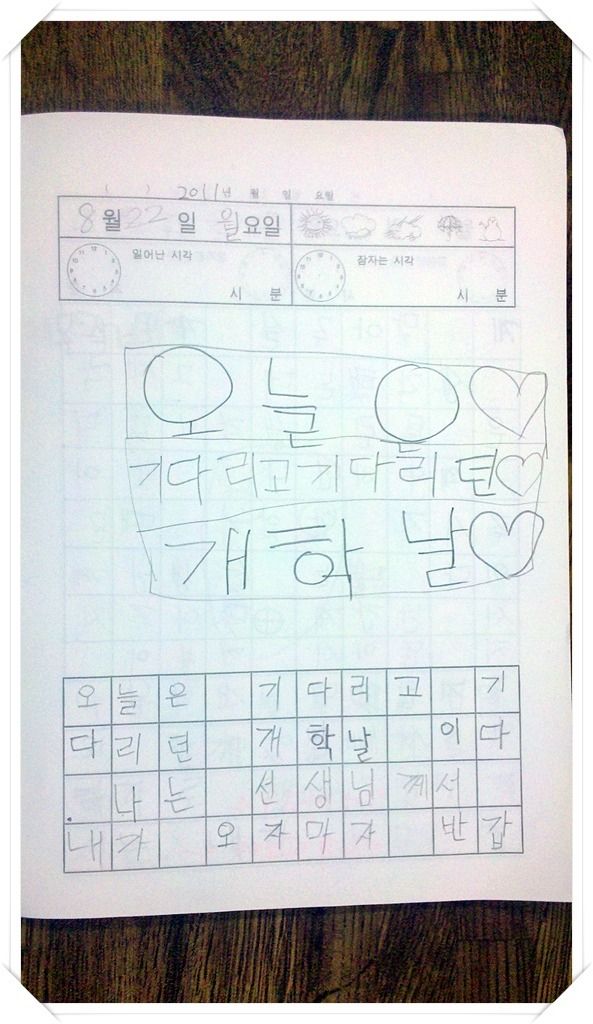 2011년 월 일 요일
8월 22일 월요일
일어난 시각
시 분
잠자는 시각
시 분
오늘은
기다리고기다리던
개학날
오늘은 기다리고 기
다리던 개학날 이다
. 나는 선생님께서
내가 오자마자 반갑